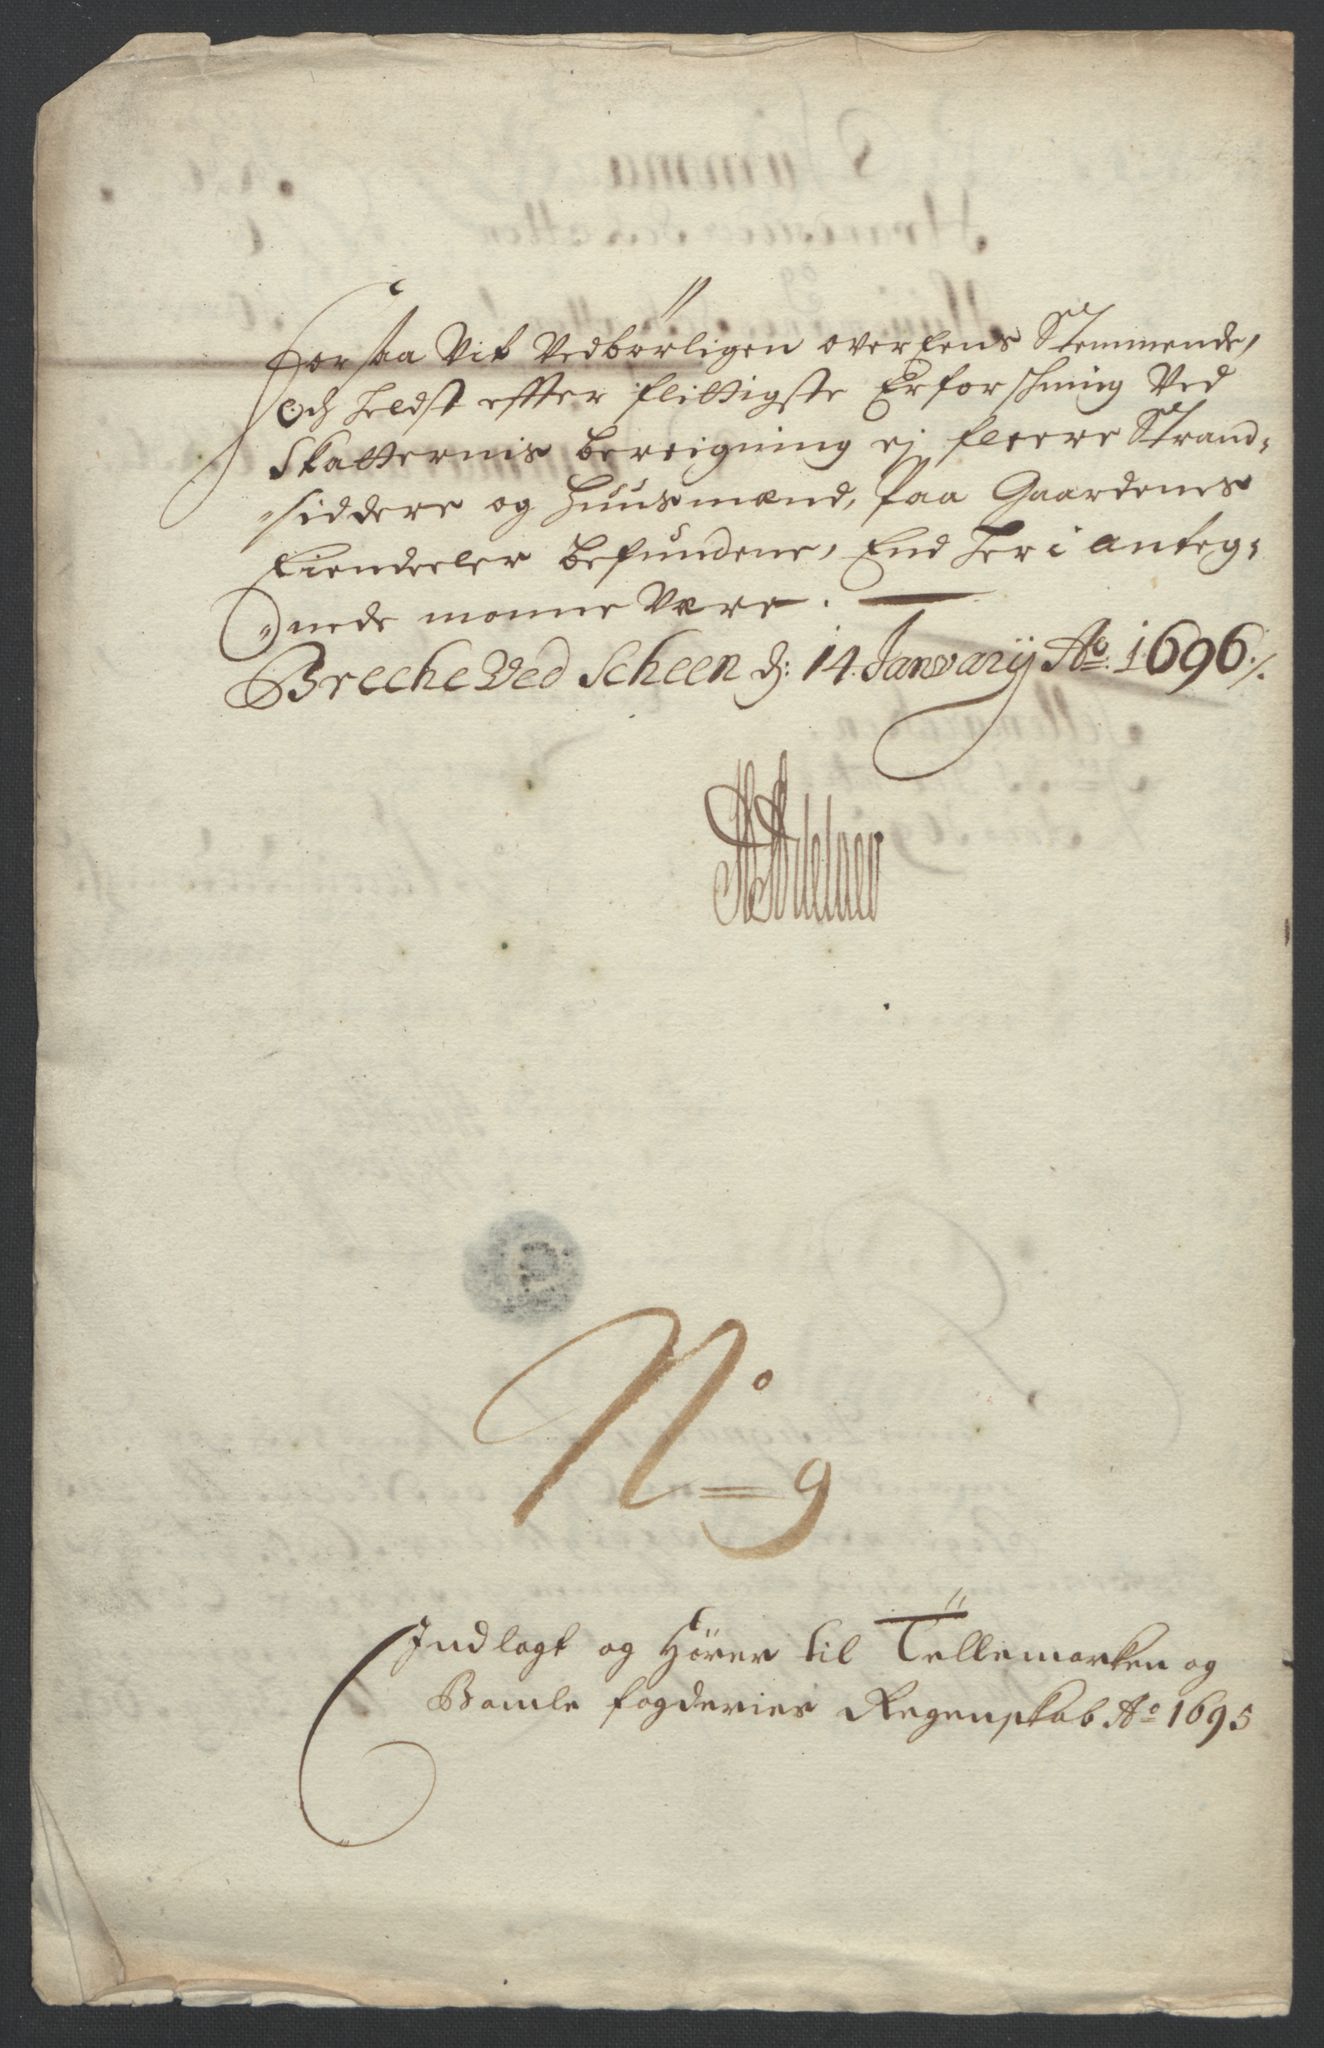 Forsaa Vit Vedbørligen overEens Stemmende,
och heldst effter flittigste Erforschning Ved
Skatternis bereigning ej fleere Strand-
siddere og Huusmænd, paa Gaardenes
Eiendeeler befundene, End her i anteg-
nede monne Være.
Breche Ved Scheen d: 14 January Ao. 1696./.
No 9
Indlagt og Hører til Tellemarken og
Bamle fogderies Regenskab Ao 1695